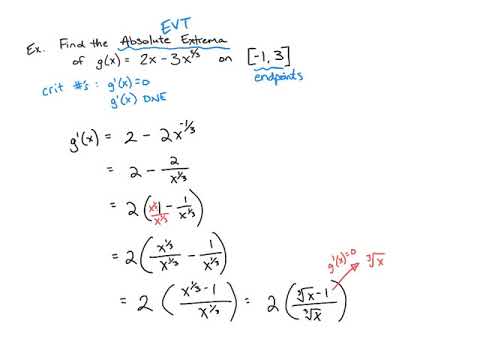 EVT
Ex. Find the Absolute Extrema
of g(x) = 2x - 3x^{2/3} on [-1, 3]
endpoints
crit #'s : g'(x)=0
g'(x) DNE
g'(x) = 2 - 2x^{-1/3}
= 2 - 2/x^{1/3}
= 2 (x^{1/3}/x^{1/3} 1 - 1/x^{1/3})
= 2 (x^{1/3}/x^{1/3} - 1/x^{1/3})
g'(x)=0 ∛x
= 2 (x^{1/3} - 1 / x^{1/3}) = 2 (∛x - 1 / ∛x)